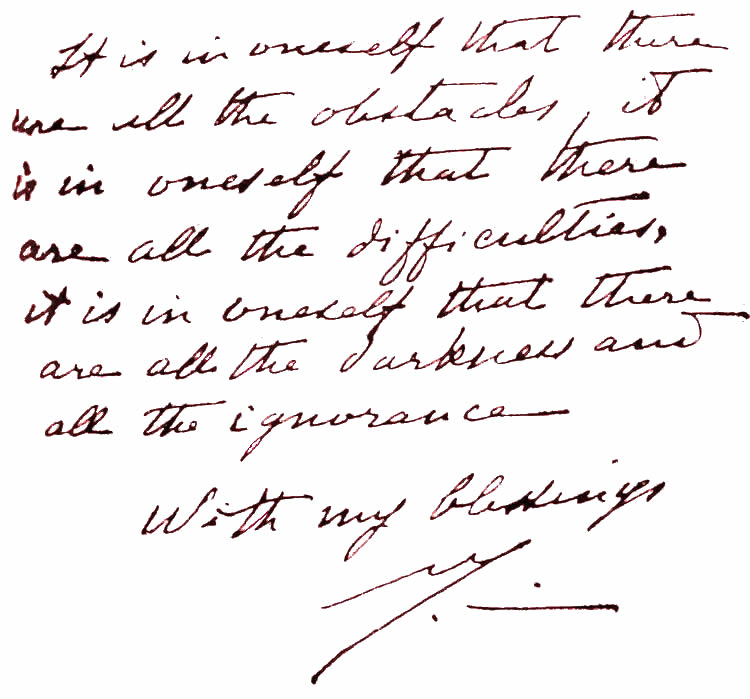 It is in oneself that there
are all the obstacles, it
is in oneself that there
are all the difficulties,
it is in oneself that there
are all the darkness and
all the ignorance
With my blessings